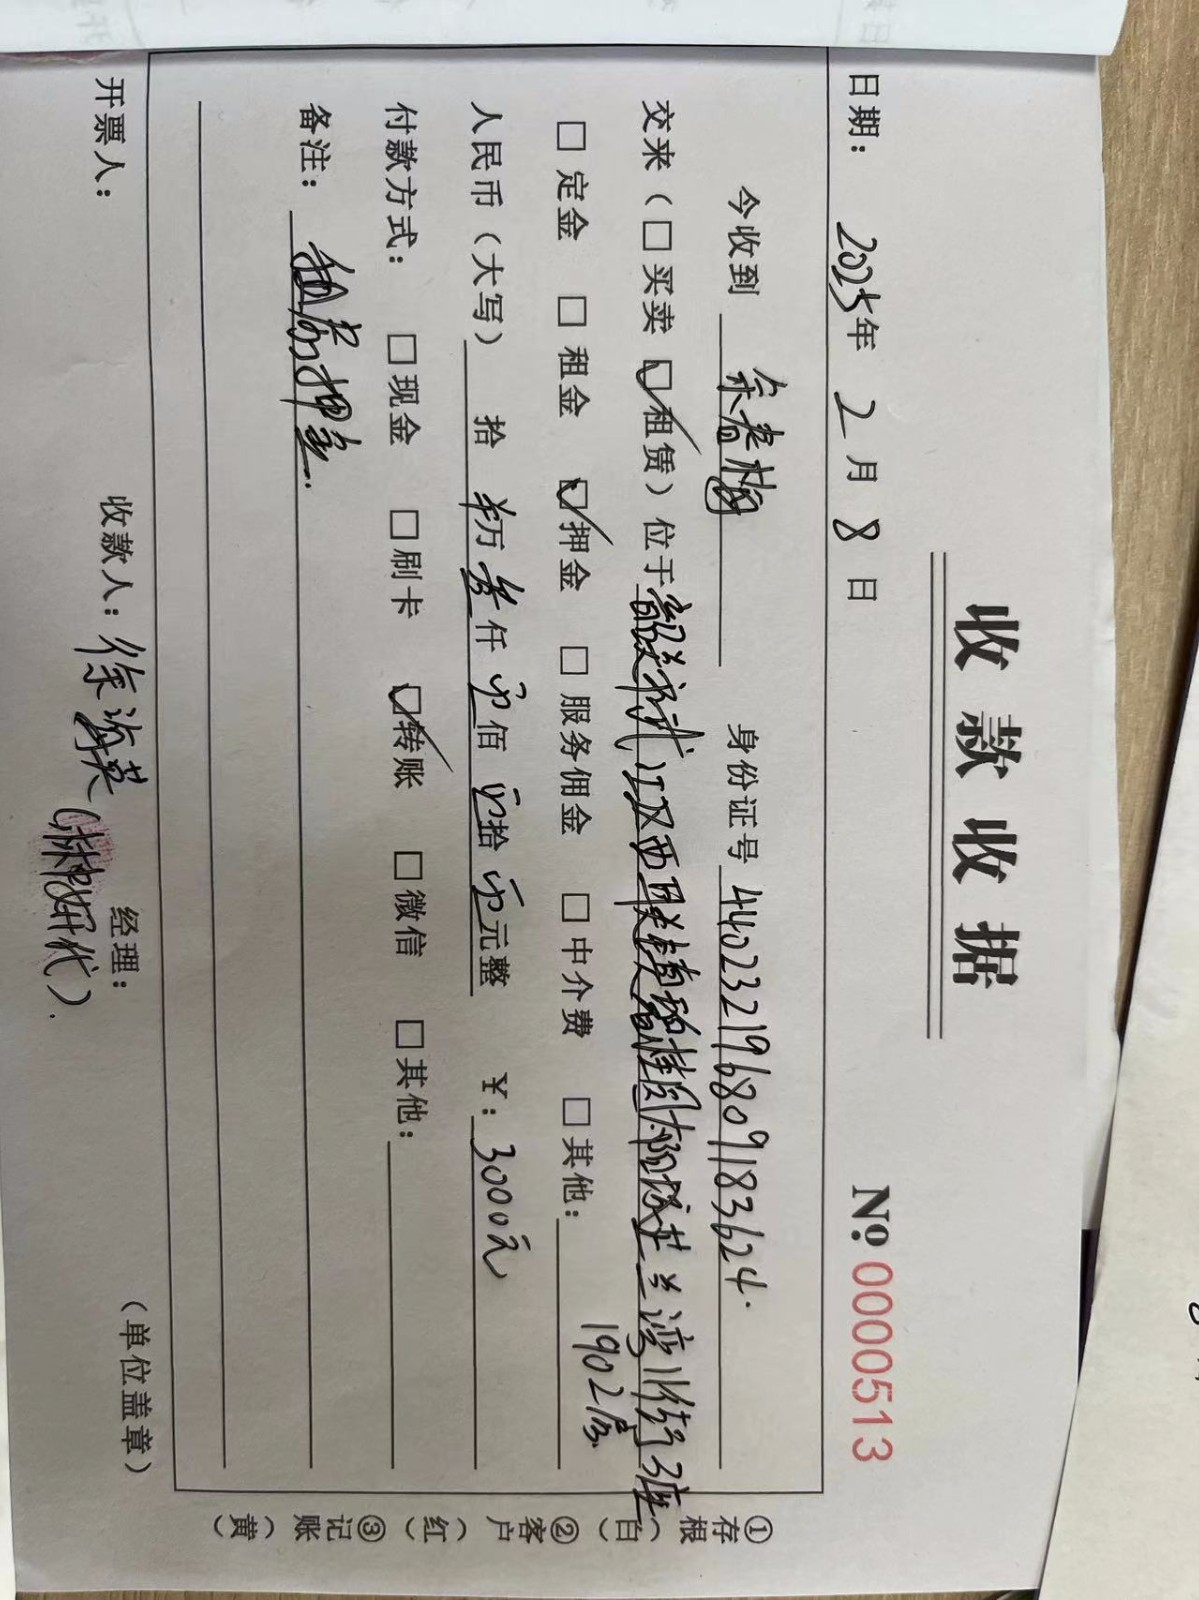 收款收据
№ 0000513
日期： 2025年 2月 8日
今收到 余春梅 身份证号 440232196809183624.
交来（□买卖 ☑租赁）位于韶关市武江区西联镇碧桂园太阳城芷兰湾川街3座
1902房.
□定金 □租金 ☑押金 □服务佣金 □中介费 □其他：
人民币（大写） 拾 万 叁仟 零佰 零拾 零元整 ￥：3000元
付款方式： □现金 □刷卡 ☑转账 □微信 □其他：
备注： 租房押金.
开票人： 收款人： 经理： （单位盖章）
①存根（白） ②客户（红） ③记账（黄）